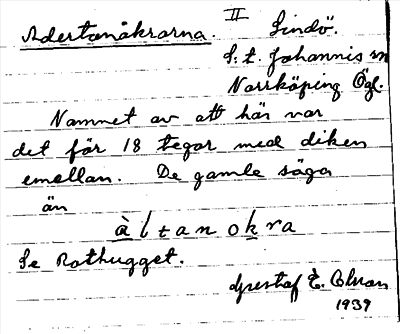 II
Adertonåkrarna. Lindö.
S:t. Johannis sn
Norrköping Ögl.
Namnet av att här var
det för 18 tegar med diken
emellan. De gamle säga
än
àltanokra
Se Rothugget.
Gustaf E.
1939